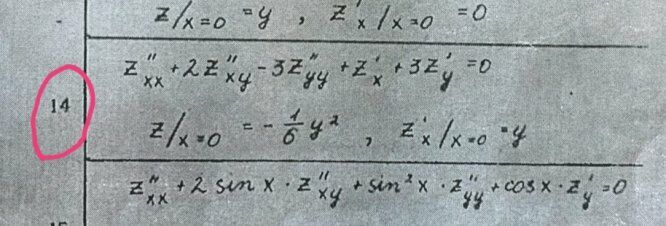 z/x=0 = y , z'x/x=0 = 0
z''xx + 2z''xy - 3z''yy + z'x + 3z'y = 0
14
z/x=0 = - 1/6 y² , z'x/x=0 = y
z''xx + 2 sin x · z''xy + sin² x · z''yy + cos x · z'y = 0